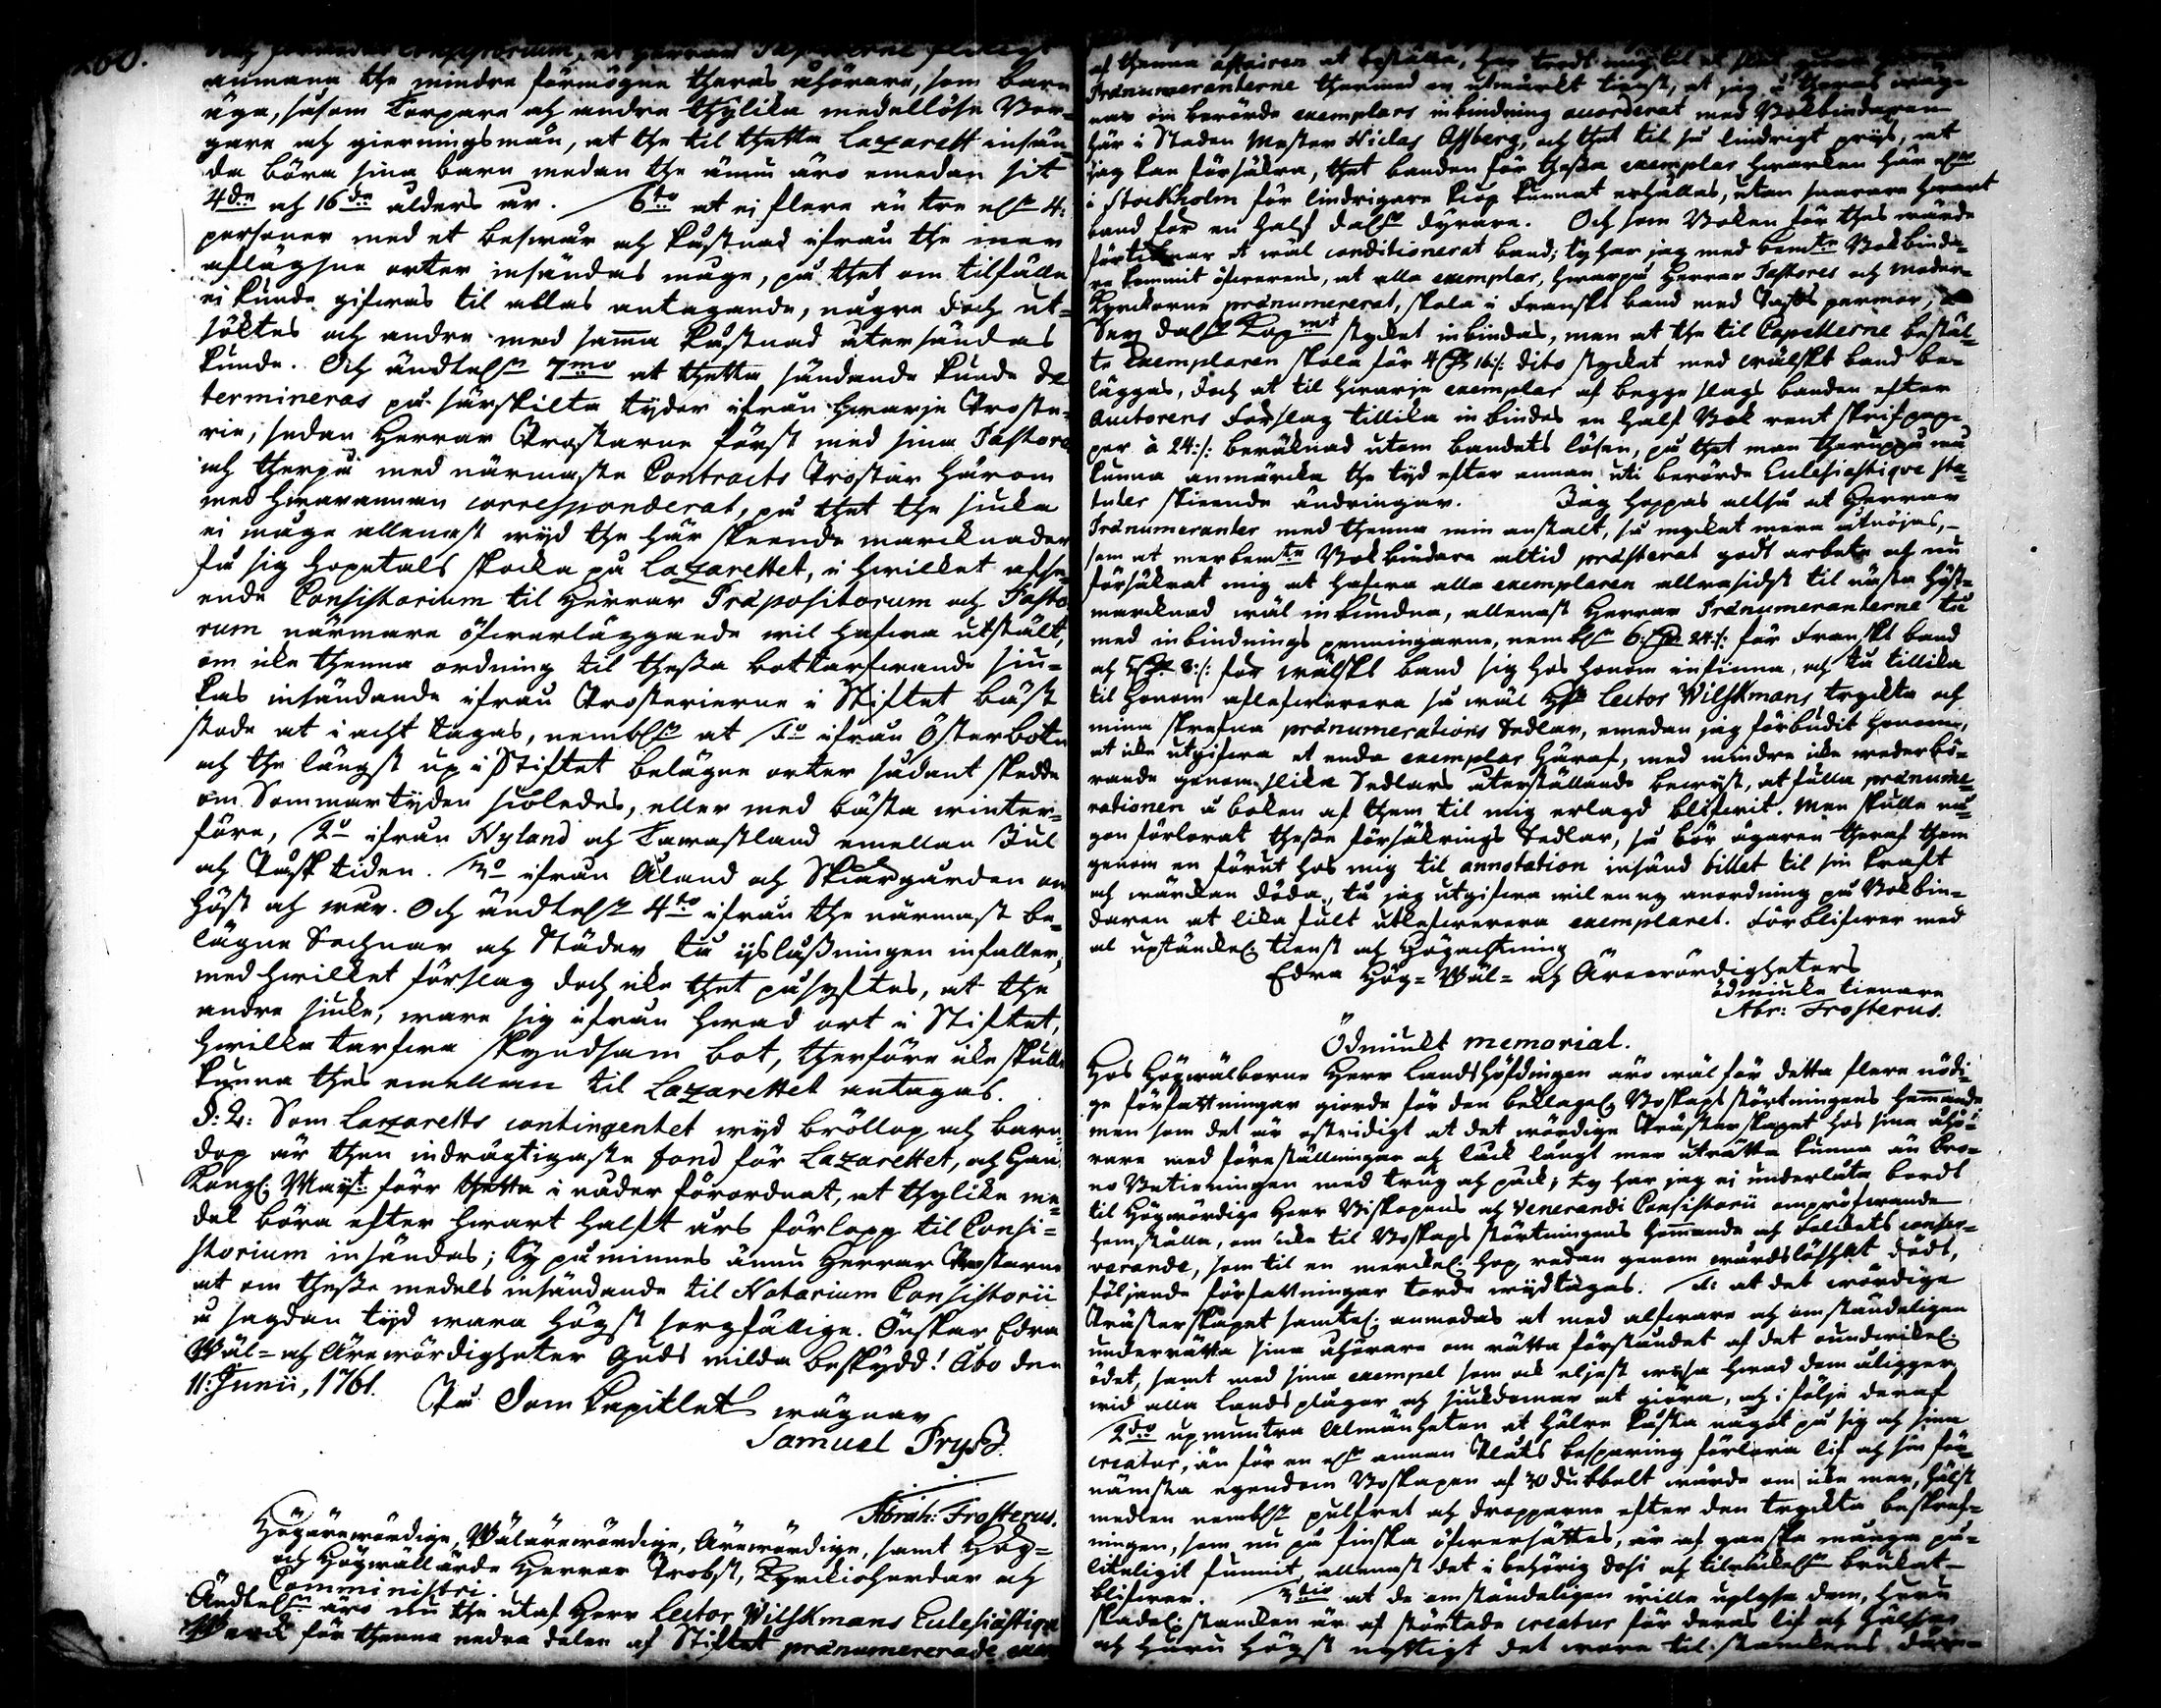 260.
anmana the mindre förmögne theras åhörare, som barn
äga, såsom Torpare och andre thylika medellöse Bor-
gare och gierningsmän, at the til thetta Lazarett insän-
da böra sina barn medan the ännu äro emedan sit
4de och 16de ålders år. 6to at ej flere än tre elr 4:
personer med et beswär och kåstnad ifrån the mer
aflägsne orter insändas måge, på thet om tilfälle
ej kunde gifwas til allas antagande, någre doch ut-
söktes och andre med samma kåstnad återsändas
kunde. Och ändtelr 7mo at thetta sändande kunde de
termineras på särskilta tyder ifrån hwarje Proste-
rie, sedan Herrar Prostarne först med sina Pastore
och therpå med närmaste Contracts Prostar härom
med hwarannan corresponderat, på thet the siuka
ei måge allenast wyd the här skeende marcknader
få sig hopetals skocka på Lazarettet, i hwilket afse-
ende Consistorium til Herrar Præpositorum och Pasto
rum närmare öfwerläggande wil hafwa utstält,
om icke thenna ordning til thessa bottarfwande siu-
kas insändande ifrån Prosterierne i Stiftet bäst
stode at i acht tagas, nembl:n at 1o ifrån Österbotn
och the längst up i Stiftet belägne orter sådant skedde
om Sommartyden sioledes, eller med bästa winter-
före, 2o ifrån Nyland och Tawastland emellan Jul
och Påsk tiden. 3o ifrån Åland och Skiärgården om
höst och wår. Och ändtelr 4to ifrån the närmast be-
lägne Sochnar och Städer tå islåssningen infaller,
med hwilket förslag doch icke thet påsyftes, at the
andre siuke, ware sig ifrån hwad ort i Stiftet,
hwilka tarfwa skyndsam bot, therföre icke skulle
kunna thes emellan til Lazarettet antagas.
§: 2: Som Lazaretts contingentet wyd bröllop och barn-
dop är then indrägtigaste fond för Lazarettet, och Hans
Kongl: Mayt: förr thetta i nåder förordnat, at thylike me-
del böra efter hwart halft års förlopp til Consi-
storium insändas; ty påminnes ännu Herrar Prostarne
at om thesse medels insändande til Notarium Consistorii
å sagdan tijd wara högst sorgfällige. Önskar Edra
Wäl- och Ärewördigheter Guds milda beskydd! Åbo den
11: Junii, 1761.
På Dom Capitlets wägnar
Samuel Pryss.
Abrah: Frosterus.
Högärewördige, Wälärewördige, Ärewördige, samt Hög-
och Högwällärde Herrar Probst, Kyrckioherdar och
Comministri.
Ändtel:n äro nu the utaf Herr Lector Wilskmans Eclesiastique
Werck för thenna nedra delen af Stiftet prænumererade exem
af thenna affairen at beställa,
Prænumeranterne thermed en utmärkt tienst, at jag å theras wäg-
nar om berörde exemplars inbindning accorderat med Bokbindaren
här i Staden Mester Niclas Assberg, och thet til så lindrigt pris, at
jag kan försäkra, thet banden för thessa exemplar hwarken här elr
i Stockholm för lindrigare kiöp kunnat erhållas, utan snarare hwart
band för en half dalr dyrare. Och som Boken för thes wärde
förtienar et wäl conditionerat band; ty har jag med bemte Bokbinda-
re kommit öfwerens, at alla exemplar, hwarpå Herrar Pastores och Moder-
kyrckorne prænumererat, skola i Franskt band med Papps permar,
Sex dalr Kopmt stycket inbindas, men at the til Capellerne bestäl-
te exemplaren skola för 4 dr 16:/: dito stycket med wälskt band be-
läggas, doch at til hwarje exemplar af begge slags banden efter
auctorens Förslag tillika inbindes en half Bok rent skrifpap-
per à 24:/: beräknad utom bandets lösen, på thet man theruppå må
kunna anmärcka the tyd efter annan uti berörde Eclesiastique sta-
tuter skeende ändringar. Jag hoppas altså at Herrar
Prænumeranter med thenna min anstalt, så mycket mera åtnöjes,
som at merbemte Bokbindare altid præsterat godt arbete och nu
försäkrat mig at hafwa alla exemplaren allrasidst til nästa Höst-
marcknad wäl inbundna, allenast Herrar Prænumeranterne tå
med inbindnings penningarne, nembl:n 6: dr 24:/: för Franskt band
och 5 dr 8:/: för wälskt band sig hos honom infinna, och tå tillika
til honom aflefwerera så wäl Hr Lector Wilskmans tryckta och
mina skrefna prænumerations Sedlar, emedan jag förbudit honom,
at icke utgifwa et enda exemplar häraf, med mindre icke wederbö-
rande genom slika Sedlars återställande bewyst, at fulla prænume-
rationen å boken af them til mig erlagd blifwit. Men skulle nå-
gon förlorat thesse försäkrings Sedlar, så bör ägaren theraf them
genom en förut hos mig til annotation insänd billet til sin kraft
och wärckan döda, tå jag utgifwa wil en ny anordning på Bokbin-
daren at lika fult utlefwerera exemplaret. Förblifwer med
al upstånckel: tienst och Högachtning
Edra Hög- Wäl- och Ärewördigheters
ödmiuka tienare
Abr: Frosterus.
Ödmiukt memorial.
Hos Högwälborne Herr Landshöfdingen äro wäl för detta flere nödi-
ge författningar giorde för den beklagel: Boskaps störtningens hemmande
men som det är ostridigt at det wördige Prästerskapet hos sina åhö-
rare med föreställningar och lack långt mer uträtta kunna än Cro-
no Betieningen med trug och påck; ty har jag ej underlåta bordt
til Högwördige Herr Biskopens och Venerandi Consistorii ompröfwande
hemställa, om icke til Boskaps störtningens hemmande och Folckets conser-
verande, som til en merckel: hop redan genom wårdslöshet dödt,
följande författningar torde wydtagas. 1: at det wördige
Prästerskapet samtel: anmodas at med alfware och omständeligen
underrätta sina åhörare om rätta förståndet af det oundwikel:
ödet, samt med sina exempel som ock eljest wysa hwad dem åligger
wid alla Lands plågor och siukdomar at giöra, och i följe deraf
2do upmuntra Almänheten at hälre kåsta något på sig och sina
creatur, än för en elr annan Plåts besparing förlora lif och sin för-
nämsta egendom Boskapen af 30 dubbelt wärde om icke mer, hälst
medlen nembl:n pulfret och dropparne efter den tryckta beskref-
ningen, som nu på finska öfwersättes, är af ganska många på-
liteligit funnit, allenast det i behörig dosi och tilräckel:n brukat
blifwer. 3tio at de omständeligen wille uplysa dem, huru
skadel: stancken är af störtade creatur för deras lif och hälsa
och huru högst nyttigt det wore til stanckens där-